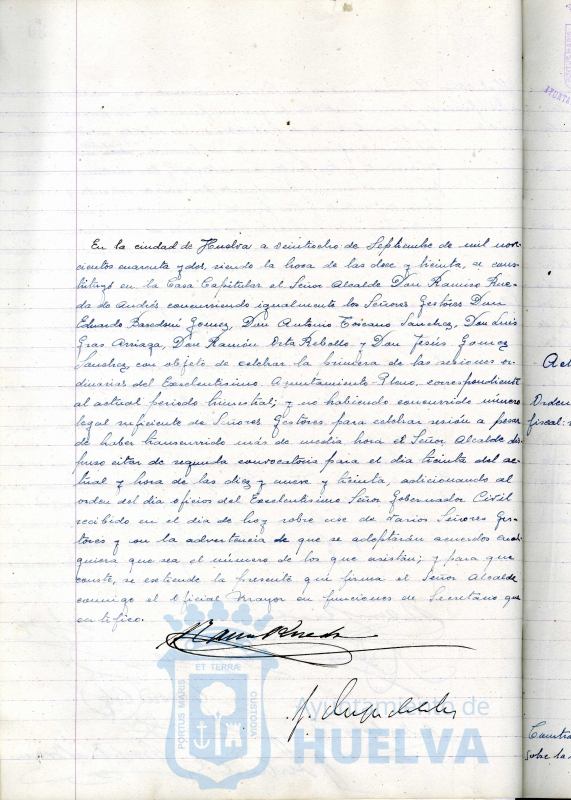 En la ciudad de Huelva a veintiocho de Septiembre de mil nove-
cientos cuarenta y dos, siendo la hora de las doce y treinta, se cons-
tituyó en la Casa Capitular el Señor Alcalde Don Ramiro Rue-
da de Andrés concurriendo igualmente los Señores Gestores Don
Eduardo Gomez, Don Antonio Toscano Sanchez, Don Luis
Gras Arriaga, Don Ramón Orta Rebollo y Don Jesús Gomez
Sanchez, con objeto de celebrar la primera de las sesiones or-
dinarias del Excelentisimo Ayuntamiento Pleno, correspondiente
al actual periodo trimestral; y no habiendo concurrido número
legal suficiente de Señores Gestores para celebrar sesión a pesar
de haber transcurrido más de media hora el Señor Alcalde dis-
puso citar de segunda convocatoria para el dia treinta del ac-
tual y hora de las diez y nueve y treinta, adicionando al
orden del dia oficios del Excelentisimo Señor Gobernador Civil
recibido en el dia de hoy sobre cese de varios Señores Ges-
tores y con la advertencia de que se adoptarán acuerdos cual-
quiera que sea el número de los que asistan; y para que
conste, se extiende la presente que firma el Señor Alcalde
conmigo el Oficial Mayor en funciones de Secretario que
certifico.
Ramiro Rueda
ET TERRÆ
PORTUS MARIS
CUSTODIA
Ayuntamiento de
HUELVA
Orden
fiscal
sobre la